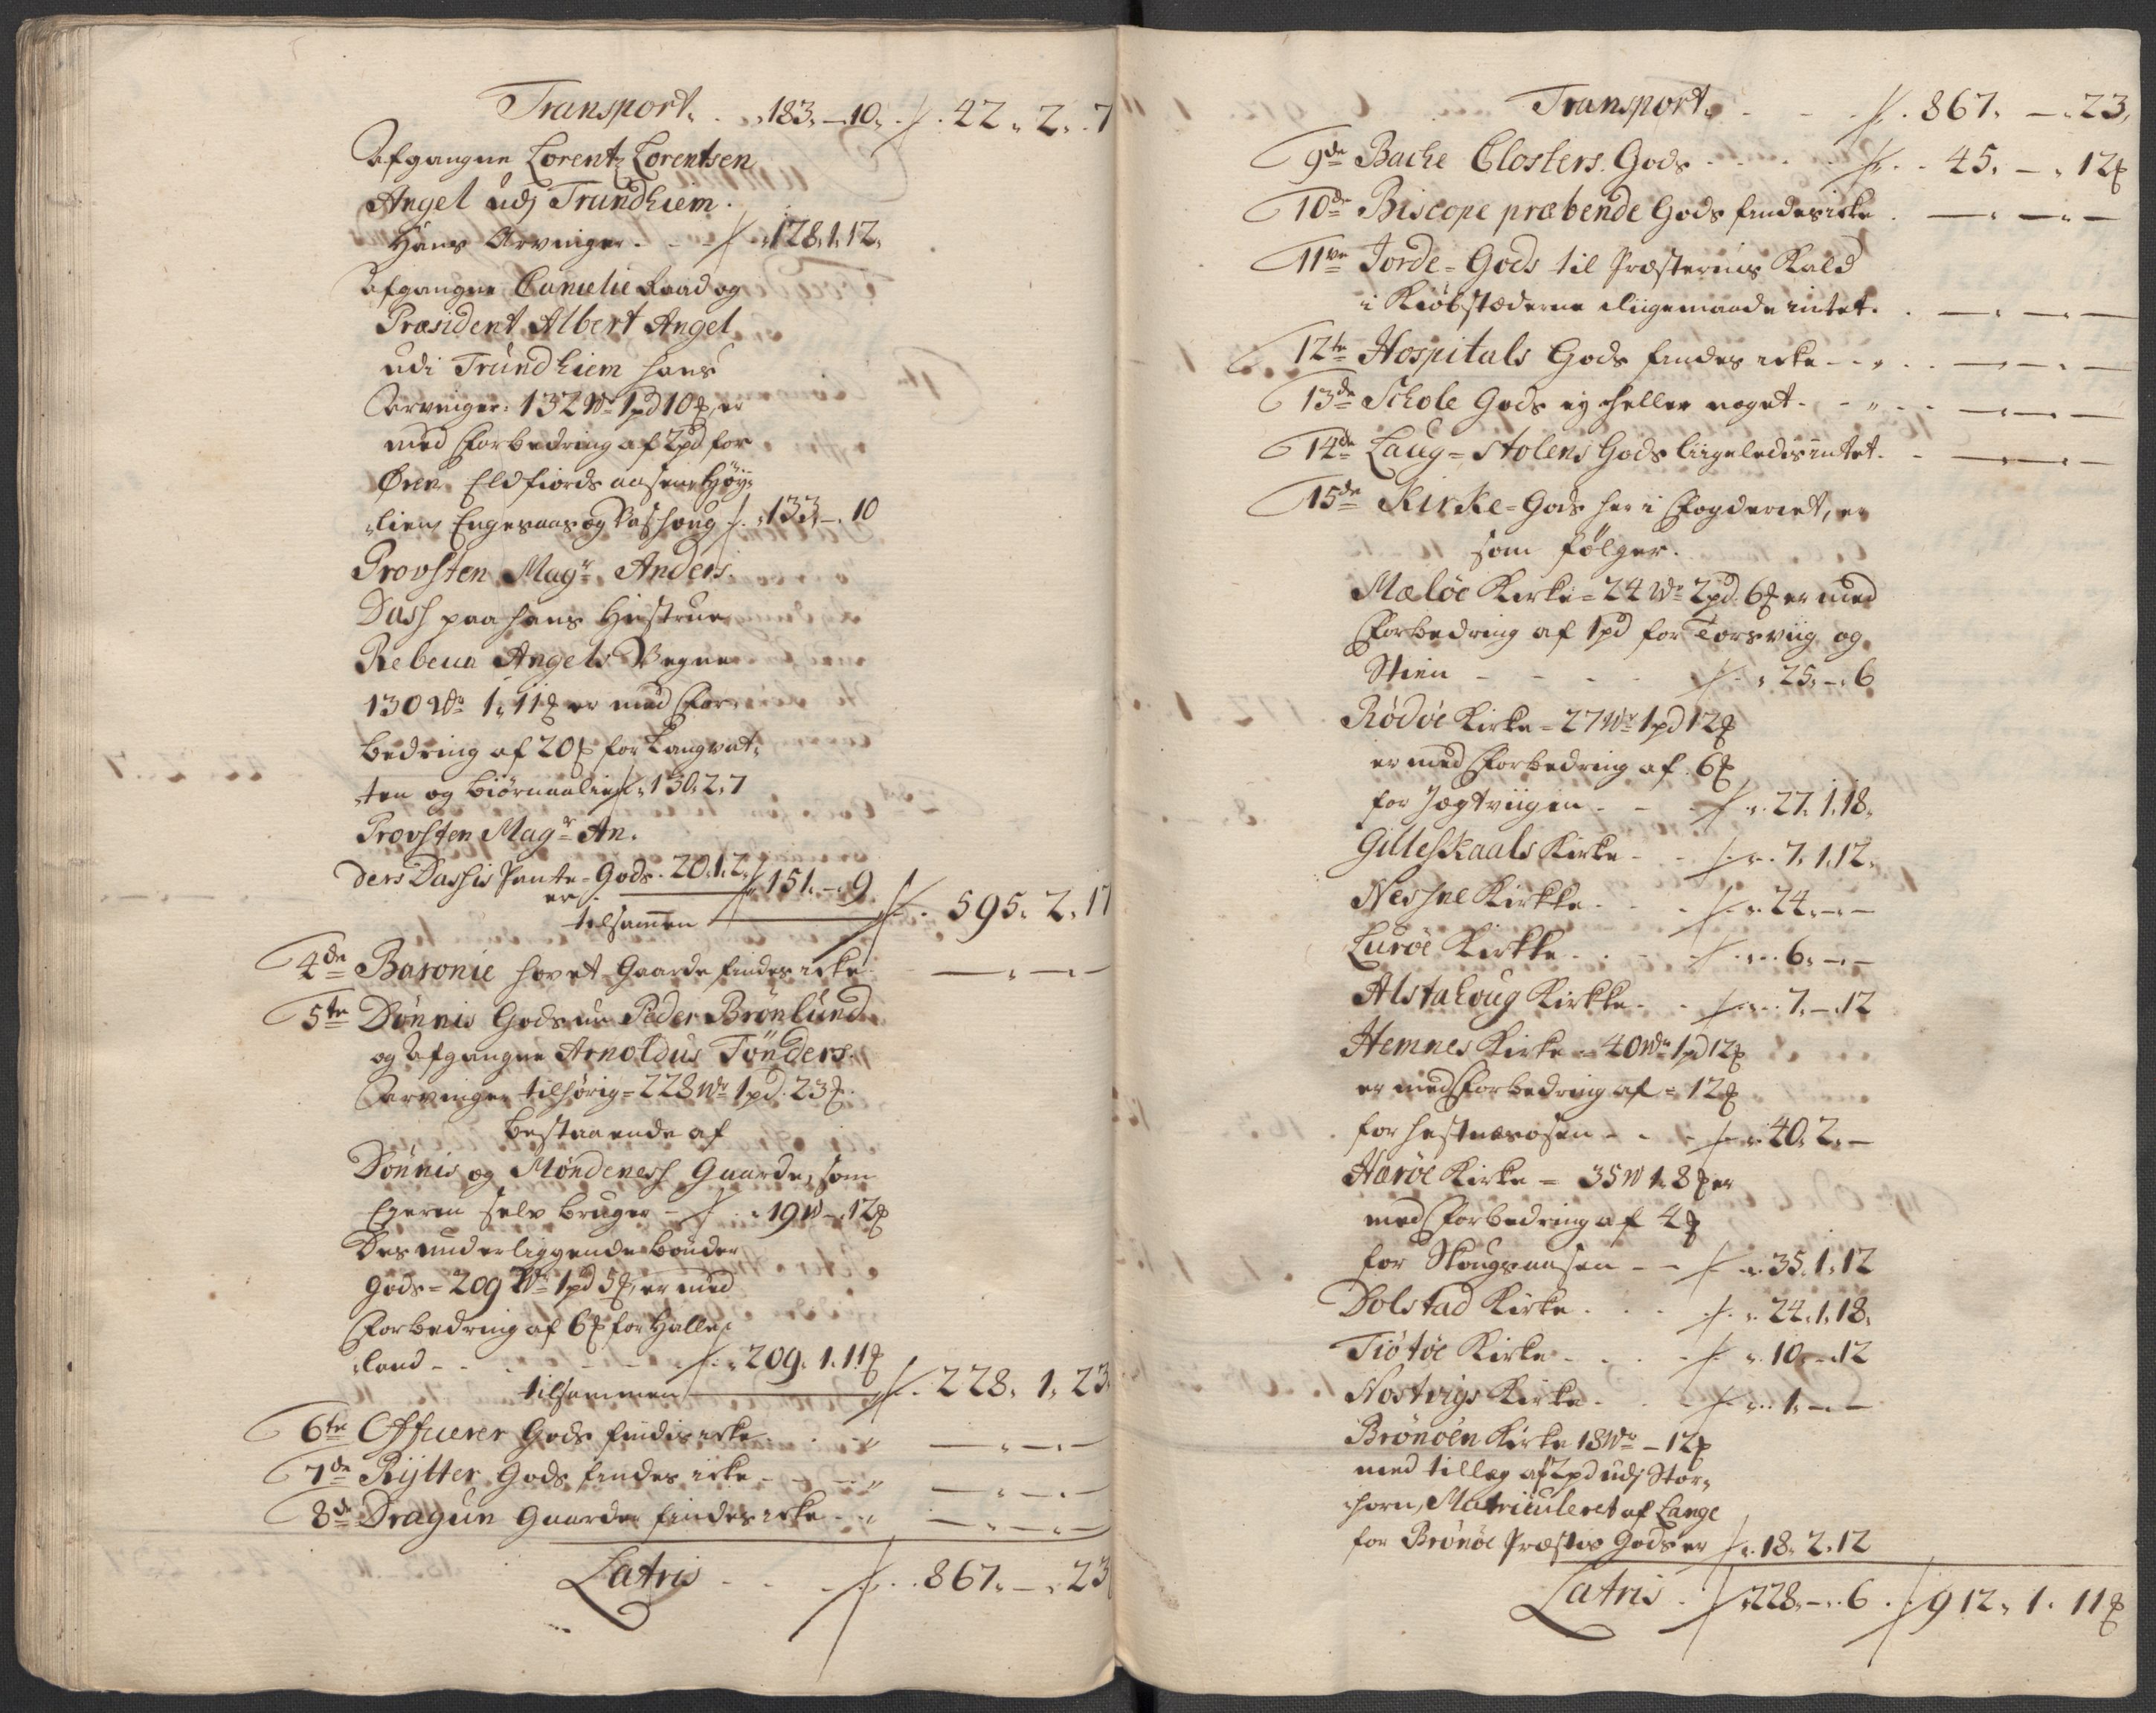 Transport. . . 183. — 10. . 42. 2. 7
Afgangne Lorentz Lorentsen
Angel udj Trundhiem.
Hans Arvinger . - - 128. 1. 12.
Afgangne Cancelie Raad og
Præsident Albert Angel
udi Trundhiem hans
Arvinger: 132 Wr 1pd 10 ℔, er
med Forbedring af 2pd for
Øren Eldfiords aasen Høy-
lien Engesaas og 133. —. 10
Provsten Magr. Anders
Dass paa hans Hustrue
Rebecca Angels Vegne
130 Wr 1. 11 ℔ er med For-
bedring af 20 ℔ for Langvat-
ten og Biørnaalien 130. 2. 7
Provsten Magr An-
ders Dassis Pante-Gods. 20. 1. 2.
er 151. —. 9.
tilsammen 595. 2. 17
4de Baronie hovet Gaarde findes icke — . — . —
5te Dønnis Godset Peder Brønlund
og Afgangne Arnoldus Tønders
Arvinger tilhørig = 228 Wr 1pd. 23 ℔.
bestaaende af
Dønnis og Møndeness Gaarde, som
Eyeren selv bruger - 19 W —. 12 ℔
Des underliggende bønder
gods = 209 Wr 1pd 5 ℔, er med
Forbedring af 6 ℔ for Halles-
land - - - - 209. 1. 11 ℔
tilsammen 228. 1. 23
6te Officerer Gods findis icke — . — . —
7de Rytter Gods findes icke — . — . —
8de Dragun Gaarder findes icke — . — . —
Latris - . . 867. —. 23
Transport. - - . 867. —. 23.
9de Bache Closters Gods . . . . 45. —. 12 ℔
10de Biscops præbende Gods findes icke . — . — . —
11ve Jorde-Gods til Præsternis Kald
i Kiøbstæderne iligemaade intet. . — . — . —
12te Hospitals Gods findes icke — . — . —
13de Schole Gods ey heller noget. — . — . —
14de Laug-stolens Gods liigeledis intet. — . — . —
15de Kirke-Gods her i Fogderiet, er
som følger.
Meløe Kirke = 24 Wr 2pd. 6 ℔ er med
Forbedring af 1pd for Torsviig og
Stien - - - . 25. —. 6
Rødøe Kirke = 27 Wr 1pd 12 ℔
er med Forbedring af 6 ℔
for Jegtviigen - - 27. 1. 18.
Gilleskaals Kirke - - 7. 1. 12.
Nessne Kirkke - - 24. —. —
Lurøe Kirkke . . - 6. —. —
Alstahoug Kirkke - - 7. —. 12
Hemnes Kirke = 40 Wr 1pd 12 ℔
er med Forbedring af = 12 ℔
for Hestnesosen - - - 40. 2. —
Herøe Kirke = 35 W 1. 8 ℔ er
med Forbedring af 4 ℔
for Skougsaasen - - 35. 1. 12
Dolstad Kirke . . . 24. 1. 18.
Tiøtøe Kirke - . . 10. —. 12
Nostvigs Kirke - - 1. —. —
Brønøen Kirke 18 Wr — 12 ℔
med tillæg af 2pd udj Stor-
horn, Matriculeret af Lange
for Brønøe Præstis Gods er 18. 2. 12
Latris . 228. —. 6 . 912. 1. 11 ℔